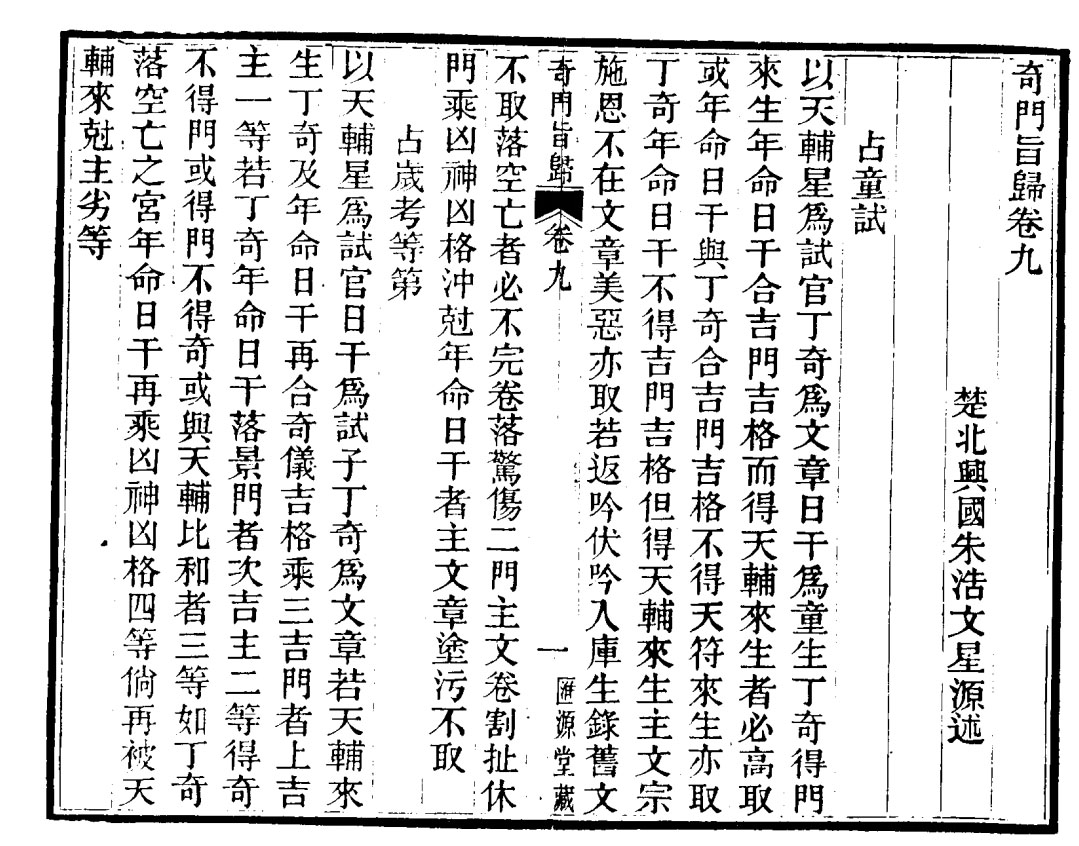 奇門旨歸卷九
楚北興國朱浩文星源述
占童試
以天輔星爲試官丁奇爲文章日干爲童生丁奇得門
來生年命日干合吉門吉格而得天輔來生者必高取
或年命日干與丁奇合吉門吉格不得天符來生亦取
丁奇年命日干不得吉門吉格但得天輔來生主文宗
施恩不在文章美惡亦取若返吟伏吟入庫生錄舊文
奇門旨歸 卷九 一 滙源堂藏
不取落空亡者必不完卷落驚傷二門主文卷割扯休
門乘凶神凶格沖尅年命日干者主文章塗污不取
占歲考等第
以天輔星爲試官日干爲試子丁奇爲文章若天輔來
生丁奇及年命日干再合奇儀吉格乘三吉門者上吉
主一等若丁奇年命日干落景門者次吉主二等得奇
不得門或得門不得奇或與天輔比和者三等如丁奇
落空亡之宮年命日干再乘凶神凶格四等倘再被天
輔來尅主劣等